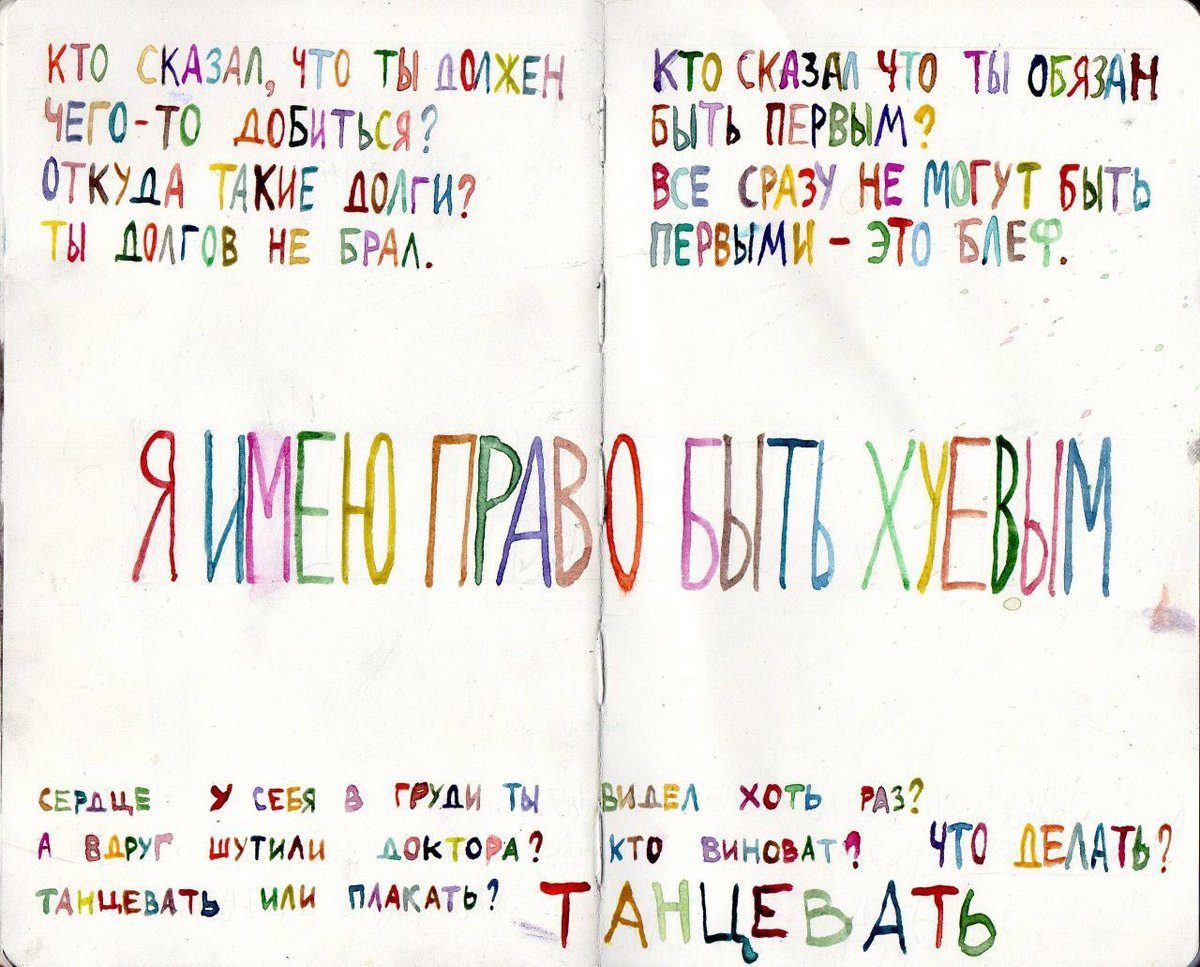 КТО СКАЗАЛ, ЧТО ТЫ ДОЛЖЕН
ЧЕГО-ТО ДОБИТЬСЯ?
ОТКУДА ТАКИЕ ДОЛГИ?
ТЫ ДОЛГОВ НЕ БРАЛ.
КТО СКАЗАЛ ЧТО ТЫ ОБЯЗАН
БЫТЬ ПЕРВЫМ?
ВСЕ СРАЗУ НЕ МОГУТ БЫТЬ
ПЕРВЫМИ - ЭТО БЛЕФ.
Я ИМЕЮ ПРАВО БЫТЬ ХУЕВЫМ
СЕРДЦЕ У СЕБЯ В ГРУДИ ТЫ ВИДЕЛ ХОТЬ РАЗ?
А ВДРУГ ШУТИЛИ ДОКТОРА? КТО ВИНОВАТ? ЧТО ДЕЛАТЬ?
ТАНЦЕВАТЬ ИЛИ ПЛАКАТЬ? ТАНЦЕВАТЬ